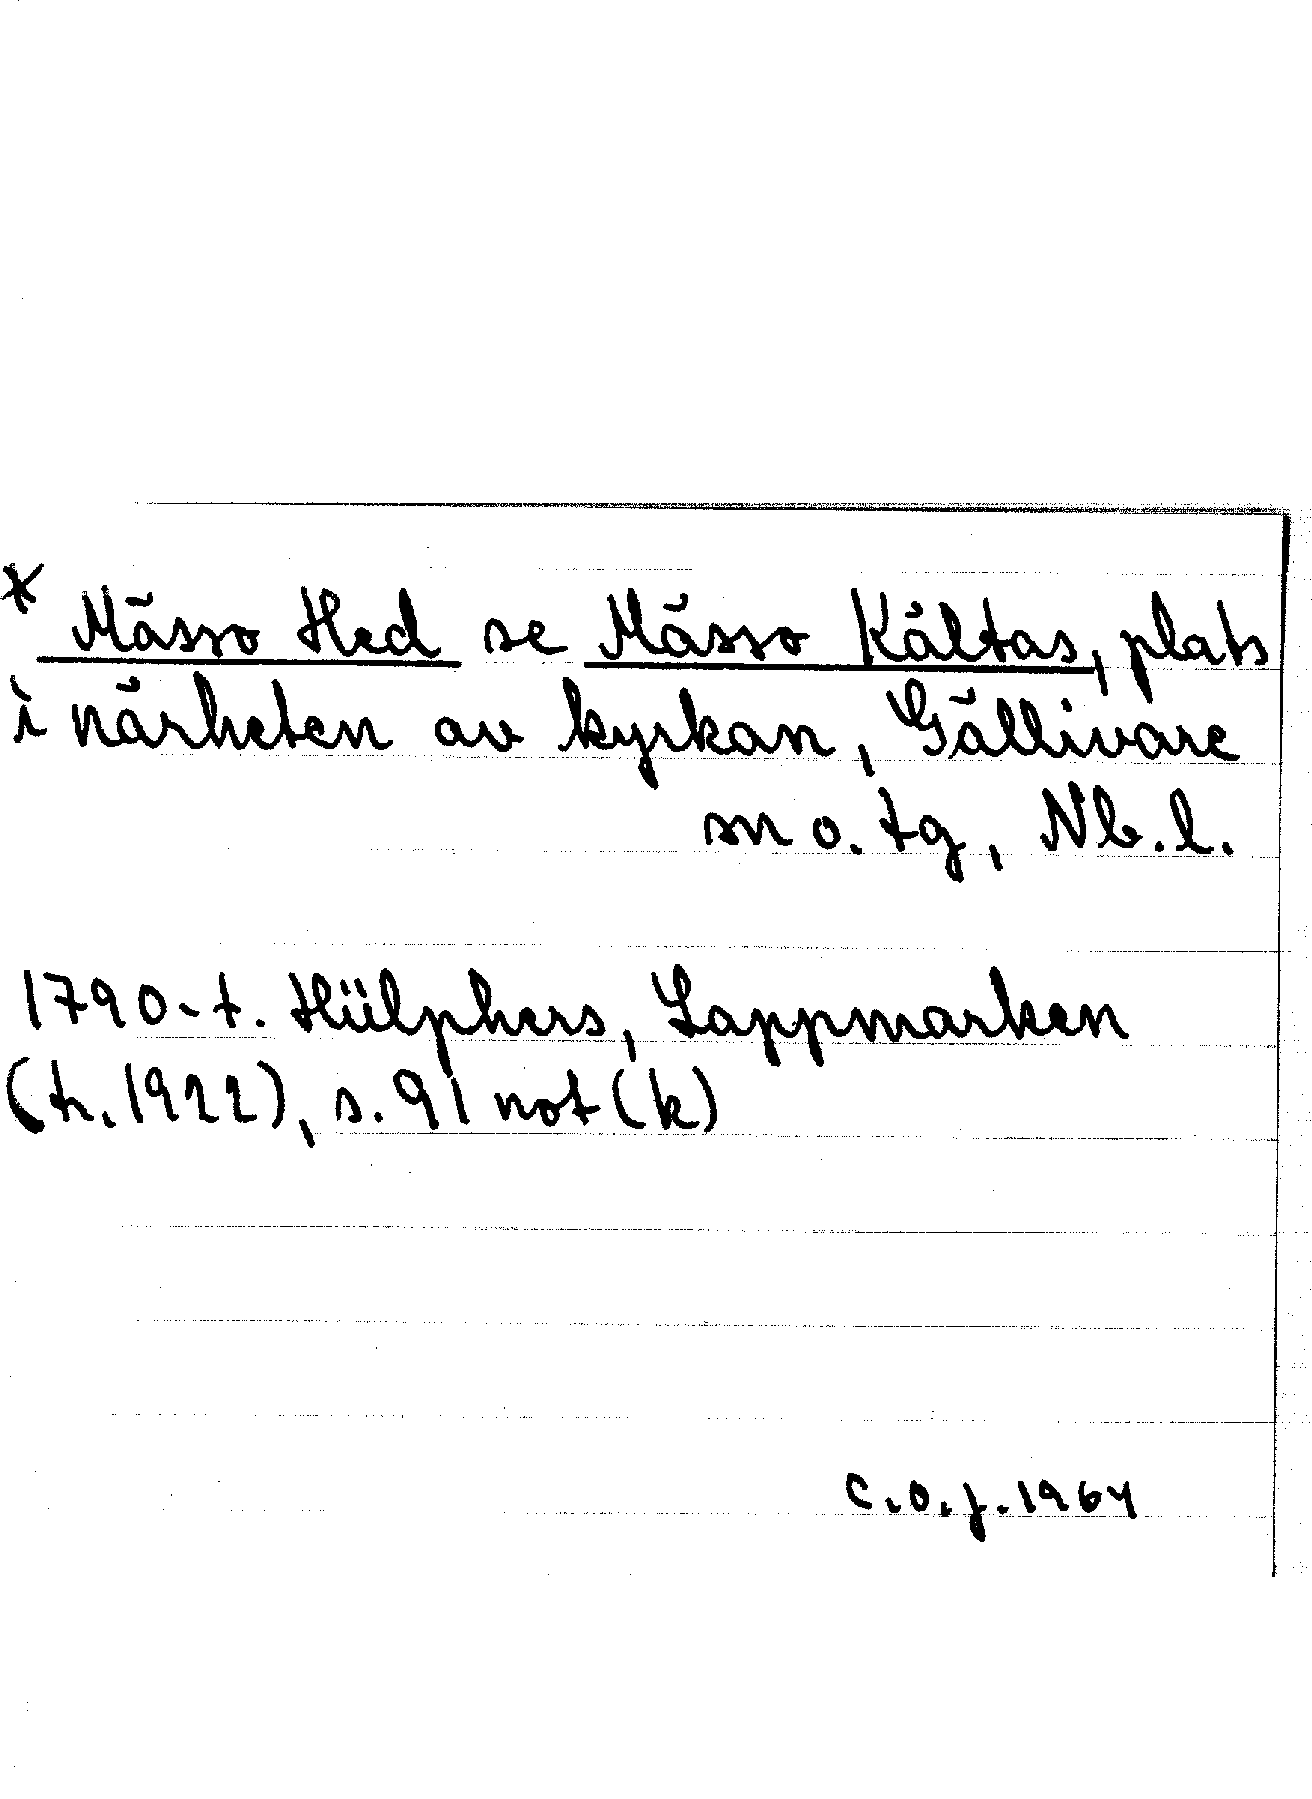 * Mässo Hed se Mässo Kältas, plats
i närheten av kyrkan, Gällivare
sn o. tg, Nb. l.
1790-t. Hülphers, Lappmarken
(tr. 1922), s. 91 not (k)
C.O.J. 1964